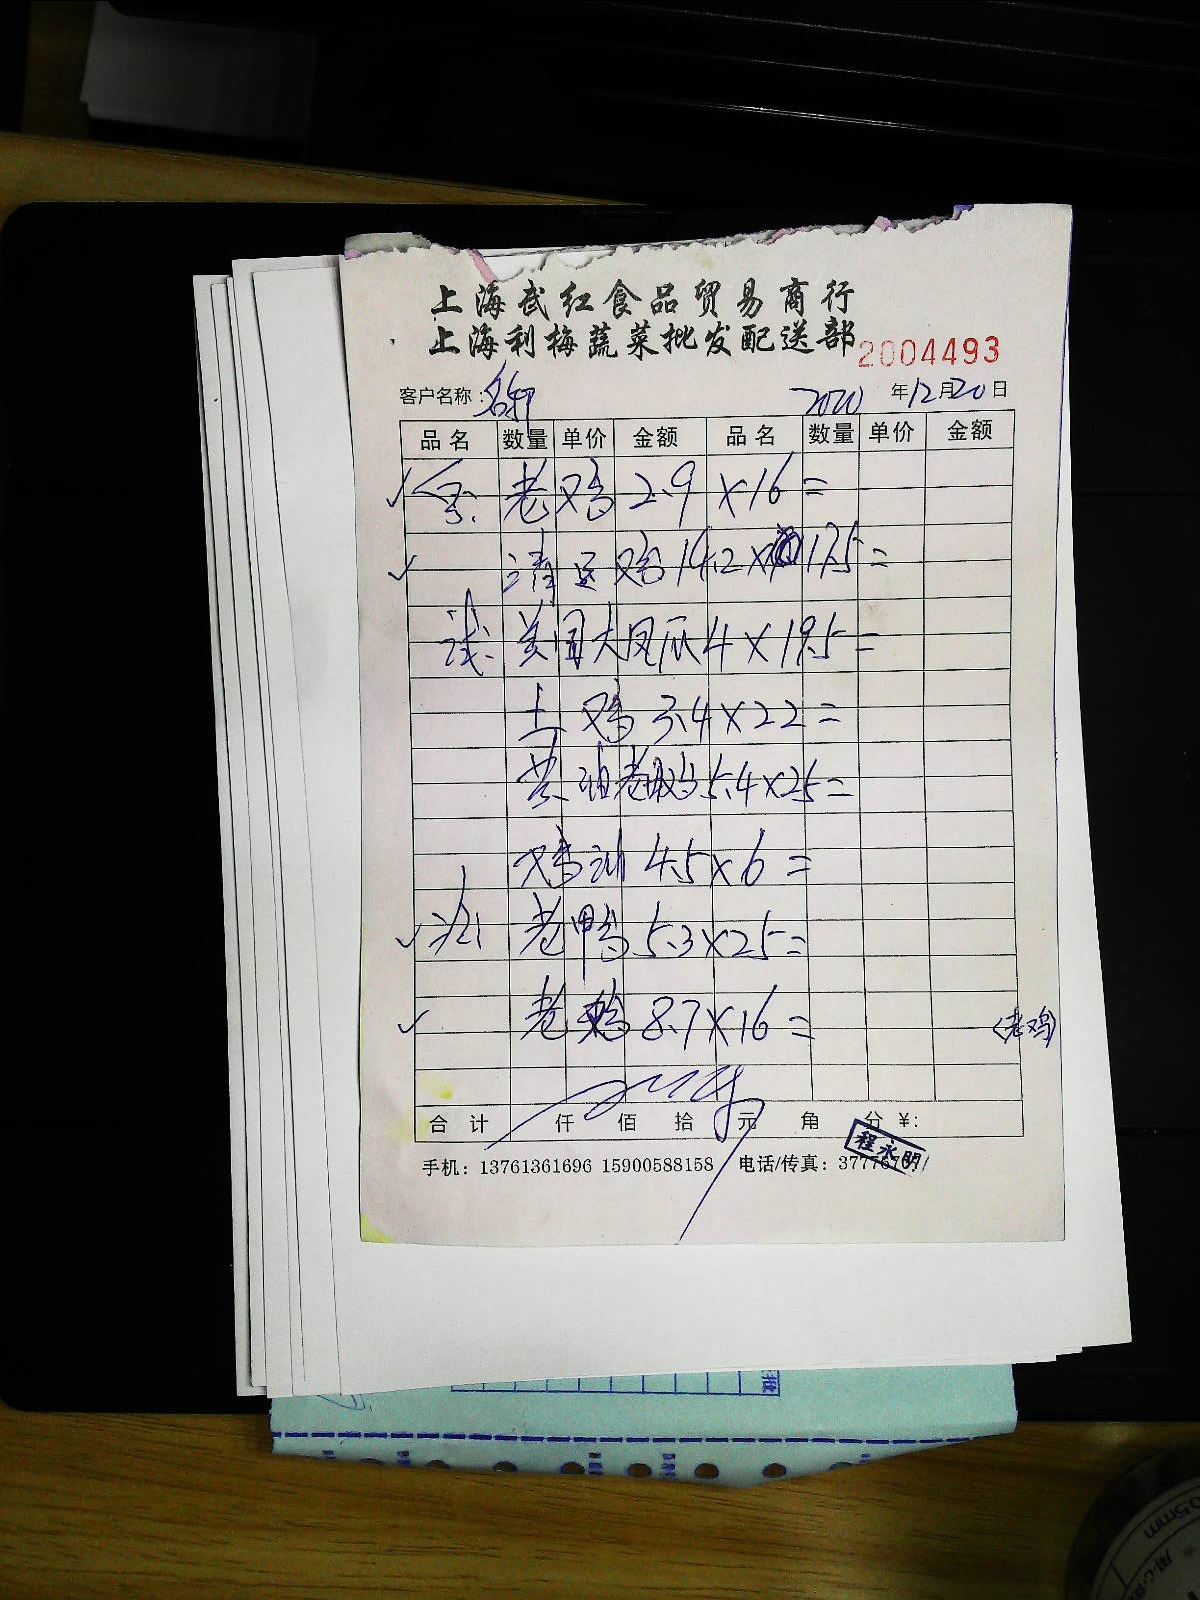 上海武红食品贸易商行
上海利梅蔬菜批发配送部 2004493
客户名称: 2020 年12月20日
品名 数量 单价 金额 品名 数量 单价 金额
老鸡 2.9 ×16=
清远鸡 14.2× 17.5=
试: 美国大凤爪 4×19.5=
土鸡 3.4×22=
黄油老鸡 5.4×25=
鸡油 4.5×6=
老鸭 5.3×25=
老 8.7×16= (老鸡)
合计 仟 佰 拾 元 角 分 ¥:
程永明
手机: 13761361696 15900588158 电话/传真:
0.5mm